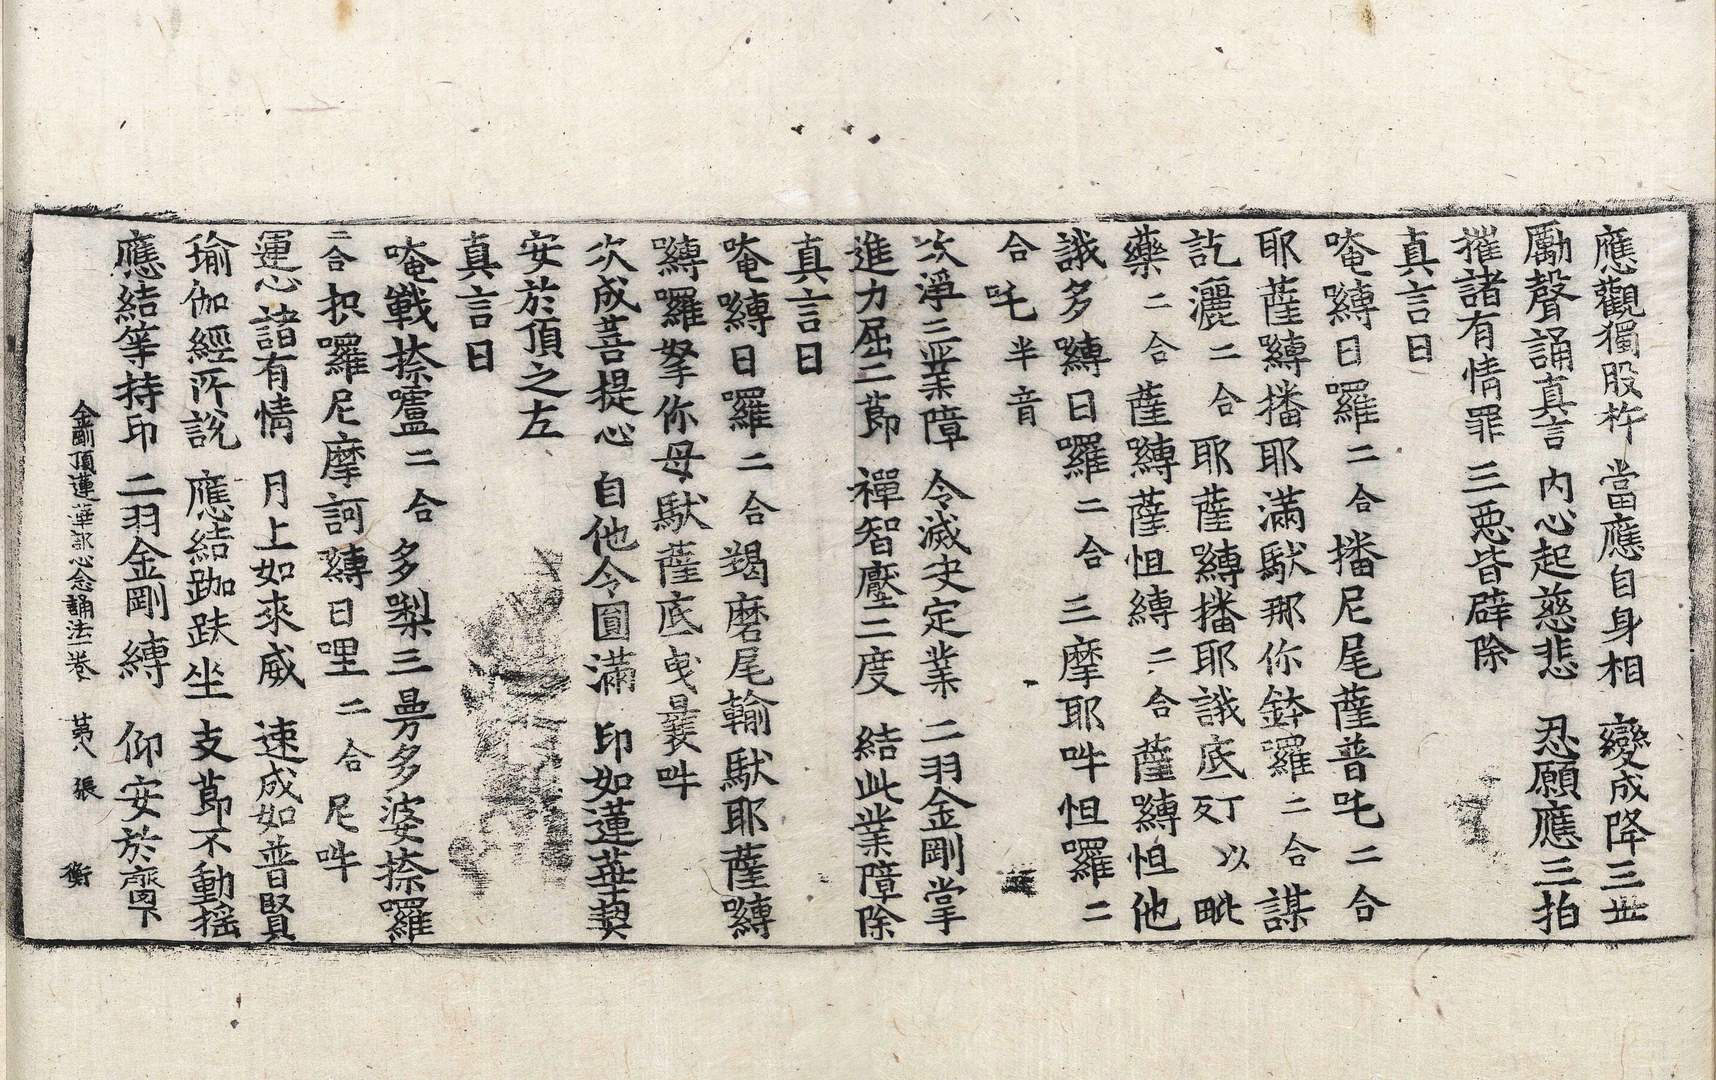 應觀獨股杵 當應自身相 變成降三世
勵聲誦真言 内心起慈悲 忍願應三拍
摧諸有情罪 三惡皆辟除
真言曰
唵嚩日羅二合播尼尾薩普吒二合
耶薩嚩播耶滿馱那你鉢羅二合謀
訖灑二合耶薩嚩播耶誐底丂丁以毗
藥二合薩嚩薩怛嚩二合薩嚩怛他
誐多嚩日囉二合三摩耶吽怛囉二
合吒半音
次淨三業障 令滅决定業 二羽金剛掌
進力屈二莭 禪智壓二度 結此業障除
真言曰
唵嚩日囉二合羯磨尾輸馱耶薩嚩
嚩囉拏你母馱薩底曳曩吽
次成菩提心 自他令圓滿 印如蓮華契
安於頂之左
真言曰
唵戰捺嚧二合多㗚三曼多婆捺囉
二合抧囉尼摩訶嚩日哩二合尼吽
運心諸有情 月上如來威 速成如普賢
瑜伽經所說 應結跏趺坐 支莭不動搖
應結等持印 二羽金剛縛 仰安於齎下
金剛頂蓮華部心念誦法一卷 第八張 衡